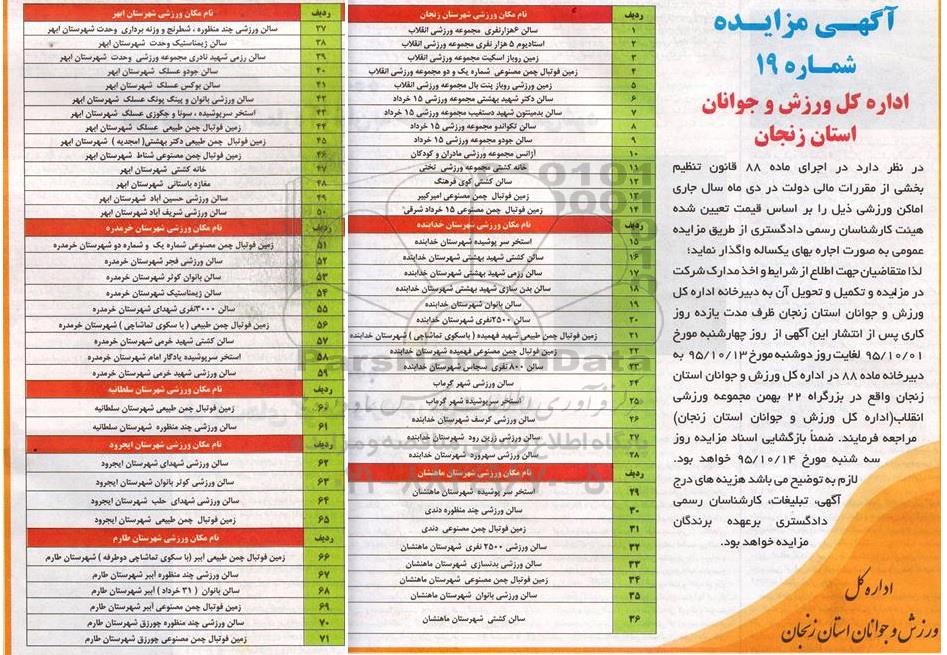 آگهی مزایده
شماره ۱۹
اداره کل ورزش و جوانان
استان زنجان
در نظر دارد در اجرای ماده ۸۸ قانون تنظیم
بخشی از مقررات مالی دولت در دی ماه سال جاری
اماکن ورزشی ذیل را بر اساس قیمت تعیین شده
هیئت کارشناسان رسمی دادگستری از طریق مزایده
عمومی به صورت اجاره بهای یکساله واگذار نماید؛
لذا متقاضیان جهت اطلاع از شرایط و اخذ مدارک شرکت
در مزایده و تکمیل و تحویل آن به دبیرخانه اداره کل
ورزش و جوانان استان زنجان ظرف مدت یازده روز
کاری پس از انتشار این آگهی از روز چهارشنبه مورخ
۹۵/۱۰/۰۱ لغایت روز دوشنبه مورخ ۹۵/۱۰/۱۳ به
دبیرخانه ماده ۸۸ در اداره کل ورزش و جوانان استان
زنجان واقع در بزرگراه ۲۲ بهمن مجموعه ورزشی
انقلاب(اداره کل ورزش و جوانان استان زنجان)
مراجعه فرمایند. ضمناً بازگشایی اسناد مزایده روز
سه شنبه مورخ ۹۵/۱۰/۱۴ خواهد بود.
لازم به توضیح می باشد هزینه های درج
آگهی، تبلیغات، کارشناسان رسمی
دادگستری برعهده برندگان
مزایده خواهد بود.
اداره کل
ورزش و جوانان استان زنجان
ردیف نام مکان ورزشی شهرستان زنجان
۱ سالن ۶هزارنفری مجموعه ورزشی انقلاب
۲ استادیوم ۵ هزار نفری مجموعه ورزشی انقلاب
۳ زمین روباز اسکیت مجموعه ورزشی انقلاب
۴ زمین فوتبال چمن مصنوعی شماره یک و دو مجموعه ورزشی انقلاب
۵ زمین ورزشی روباز پنت بال مجموعه ورزشی انقلاب
۶ سالن دکتر شهید بهشتی مجموعه ورزشی ۱۵ خرداد
۷ سالن بدمینتون شهید دستغیب مجموعه ورزشی ۱۵ خرداد
۸ سالن تکواندو مجموعه ورزشی ۱۵ خرداد
۹ سالن جودو مجموعه ورزشی ۱۵ خرداد
۱۰ آژانس مجموعه ورزشی مادران و کودکان
۱۱ خانه کشتی مجموعه ورزشی تختی
۱۲ سالن کشتی کوی فرهنگ
۱۳ زمین فوتبال چمن مصنوعی امیرکبیر
۱۴ زمین فوتبال چمن مصنوعی ۱۵ خرداد شرقی
ردیف نام مکان ورزشی شهرستان خدابنده
۱۵ استخر سر پوشیده شهرستان خدابنده
۱۶ سالن کشتی شهید بهشتی شهرستان خدابنده
۱۷ سالن رزمی شهید بهشتی شهرستان خدابنده
۱۸ سالن بدن سازی شهید بهشتی شهرستان خدابنده
۱۹ سالن بانوان شهرستان خدابنده
۲۰ سالن ۲۵۰۰نفری شهرستان خدابنده
۲۱ زمین فوتبال چمن طبیعی شهید فهمیده ( باسکوی تماشاچی ) شهرستان خدابنده
۲۲ زمین فوتبال چمن مصنوعی فهمیده شهرستان خدابنده
۲۳ سالن ۸۰۰ نفری سجاس شهرستان خدابنده
۲۴ سالن ورزشی شهر گرماب
۲۵ استخر سرپوشیده شهر گرماب
۲۶ سالن ورزشی کرسف شهرستان خدابنده
۲۷ سالن ورزشی زرین رود شهرستان خدابنده
۲۸ سالن ورزشی سهرورد شهرستان خدابنده
ردیف نام مکان ورزشی شهرستان ماهنشان
۲۹ استخر سر پوشیده شهرستان ماهنشان
۳۰ سالن ورزشی چند منظوره دندی
۳۱ زمین فوتبال چمن مصنوعی دندی
۳۲ سالن ورزشی ۲۵۰۰ نفری شهرستان ماهنشان
۳۳ سالن ورزشی بدنسازی شهرستان ماهنشان
۳۴ زمین فوتبال چمن مصنوعی شهرستان ماهنشان
۳۵ سالن ورزشی بانوان شهرستان ماهنشان
۳۶ سالن کشتی شهرستان ماهنشان
ردیف نام مکان ورزشی شهرستان ابهر
۳۷ سالن ورزشی چند منظوره ، شطرنج و وزنه برداری وحدت شهرستان ابهر
۳۸ سالن ژیمناستیک وحدت شهرستان ابهر
۳۹ سالن رزمی شهید نادری مجموعه ورزشی وحدت شهرستان ابهر
۴۰ سالن جودو عسلک شهرستان ابهر
۴۱ سالن بوکس عسلک شهرستان ابهر
۴۲ سالن ورزشی بانوان و پینگ پونگ عسلک شهرستان ابهر
۴۳ استخر سرپوشیده ، سونا و جکوزی عسلک شهرستان ابهر
۴۴ زمین فوتبال چمن طبیعی عسلک شهرستان ابهر
۴۵ زمین فوتبال چمن طبیعی دکتر بهشتی( امجدیه ) شهرستان ابهر
۴۶ زمین فوتبال چمن مصنوعی شناط شهرستان ابهر
۴۷ خانه کشتی شهرستان ابهر
۴۸ مغازه باستانی شهرستان ابهر
۴۹ سالن ورزشی حسین آباد شهرستان ابهر
۵۰ سالن ورزشی شریف آباد شهرستان ابهر
ردیف نام مکان ورزشی شهرستان خرمدره
۵۱ زمین فوتبال چمن مصنوعی شماره یک و شماره دو شهرستان خرمدره
۵۲ سالن ورزشی فجر شهرستان خرمدره
۵۳ سالن بانوان کوثر شهرستان خرمدره
۵۴ سالن ژیمناستیک شهرستان خرمدره
۵۵ سالن ۳۰۰۰نفری شهدای شهرستان خرمدره
۵۶ زمین فوتبال چمن طبیعی ( با سکوی تماشاچی ) شهرستان خرمدره
۵۷ سالن کشتی شهید خرمی شهرستان خرمدره
۵۸ استخر سرپوشیده یادگار امام شهرستان خرمدره
۵۹ سالن ورزشی شهید خرمی شهرستان خرمدره
ردیف نام مکان ورزشی شهرستان سلطانیه
۶۰ زمین فوتبال چمن طبیعی شهرستان سلطانیه
۶۱ سالن ورزشی چند منظوره شهرستان سلطانیه
ردیف نام مکان ورزشی شهرستان ایجرود
۶۲ سالن ورزشی شهدای شهرستان ایجرود
۶۳ سالن ورزشی کوثر بانوان شهرستان ایجرود
۶۴ سالن ورزشی شهدای حلب شهرستان ایجرود
۶۵ زمین فوتبال چمن طبیعی شهرستان ایجرود
ردیف نام مکان ورزشی شهرستان طارم
۶۶ زمین فوتبال چمن طبیعی آببر (با سکوی تماشاچی دوطرفه ) شهرستان طارم
۶۷ سالن ورزشی چند منظوره آببر شهرستان طارم
۶۸ سالن بانوان ( ۳۱ خرداد ) آببر شهرستان طارم
۶۹ زمین فوتبال چمن مصنوعی آببر شهرستان طارم
۷۰ سالن ورزشی چند منظوره چورزق شهرستان طارم
۷۱ زمین فوتبال چمن مصنوعی چورزق شهرستان طارم